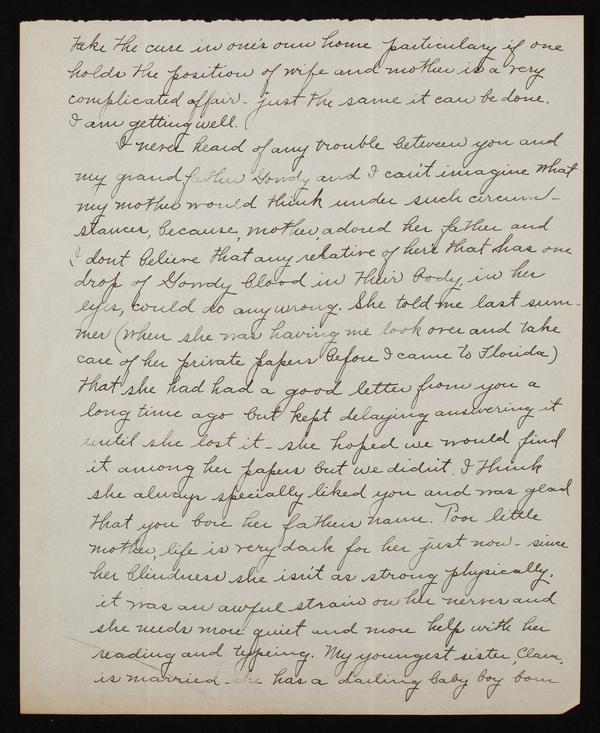 take the cure in one's own home particulary if one
holds the position of wife and mother is a very
complicated affair - just the same it can be done.
I am getting well.
I never heard of any trouble between you and
my grandfather Gowdy and I can't imagine what
my mother would think under such circum-
stances, because, mother, adored her father and
I dont believe that any relative of hers that has one
drop of Gowdy blood in their body, in her
eyes, could do any wrong. She told me last sum-
mer (when she was having me look over and take
care of her private papers before I came to Florida)
that she had had a good letter from you a
long time ago but kept delaying answering it
until she lost it - she hoped we would find
it among her papers but we didn't. I think
she always specially liked you and was glad
that you bore her father's name. Poor little
mother, life is very dark for her just now - since
her blindness she isn't as strong physically.
it was an awful strain on her nerves and
she needs more quiet and more help with her
reading and typeing. My youngest sister, Clara,
is married - she has a darling baby boy born